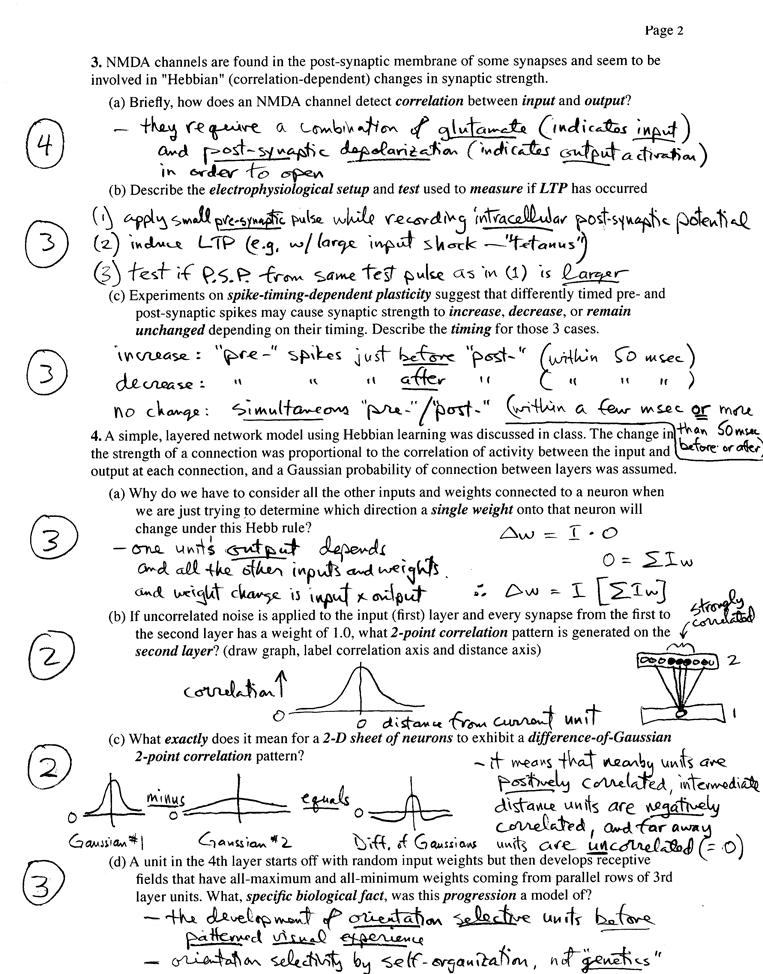 Page 2
3. NMDA channels are found in the post-synaptic membrane of some synapses and seem to be
involved in "Hebbian" (correlation-dependent) changes in synaptic strength.
(a) Briefly, how does an NMDA channel detect correlation between input and output?
4
– they require a combination of glutamate (indicates input)
and post-synaptic depolarization (indicates output activation)
in order to open
(b) Describe the electrophysiological setup and test used to measure if LTP has occurred
3
(1) apply small pre-synaptic pulse while recording intracellular post-synaptic potential
(2) induce LTP (e.g. w/large input shock – "tetanus")
(3) test if P.S.P. from same test pulse as in (1) is larger
(c) Experiments on spike-timing-dependent plasticity suggest that differently timed pre- and
post-synaptic spikes may cause synaptic strength to increase, decrease, or remain
unchanged depending on their timing. Describe the timing for those 3 cases.
3
increase: "pre-" spikes just before "post-" (within 50 msec)
decrease: " " " after " ( " " " )
no change: simultaneous "pre-"/"post-" (within a few msec or more
than 50 msec
before or after)
4. A simple, layered network model using Hebbian learning was discussed in class. The change in
the strength of a connection was proportional to the correlation of activity between the input and
output at each connection, and a Gaussian probability of connection between layers was assumed.
(a) Why do we have to consider all the other inputs and weights connected to a neuron when
we are just trying to determine which direction a single weight onto that neuron will
change under this Hebb rule?
3
– one unit's output depends
and all the other inputs and weights.
and weight change is input x output
Δw = I · O
O = ΣIw
∴ Δw = I [ΣIw]
(b) If uncorrelated noise is applied to the input (first) layer and every synapse from the first to
the second layer has a weight of 1.0, what 2-point correlation pattern is generated on the
second layer? (draw graph, label correlation axis and distance axis)
2
correlation ↑
0
0 distance from current unit
strongly
correlated
2
1
(c) What exactly does it mean for a 2-D sheet of neurons to exhibit a difference-of-Gaussian
2-point correlation pattern?
2
0 minus 0 equals 0
Gaussian #1 Gaussian #2 Diff. of Gaussians
– it means that nearby units are
positively correlated, intermediate
distance units are negatively
correlated, and far away
units are uncorrelated (= 0)
(d) A unit in the 4th layer starts off with random input weights but then develops receptive
fields that have all-maximum and all-minimum weights coming from parallel rows of 3rd
layer units. What, specific biological fact, was this progression a model of?
3
– the development of orientation selective units before
patterned visual experience
– orientation selectivity by self-organization, not "genetics"